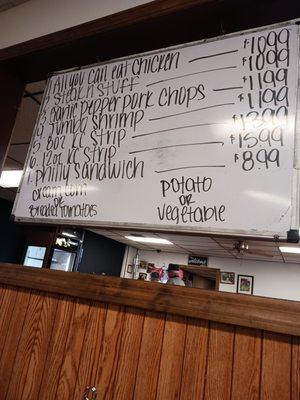 1. All you can eat chicken $10.99
2. Steak n stuff $10.99
3. Garlic Pepper pork chops $11.99
4. Jumbo shrimp $11.99
5. 8oz KC strip $13.99
6. 12oz KC strip $15.99
7. Philly Sandwich $8.99
cream corn
or
Breaded tomatoes
potato
or
vegetable